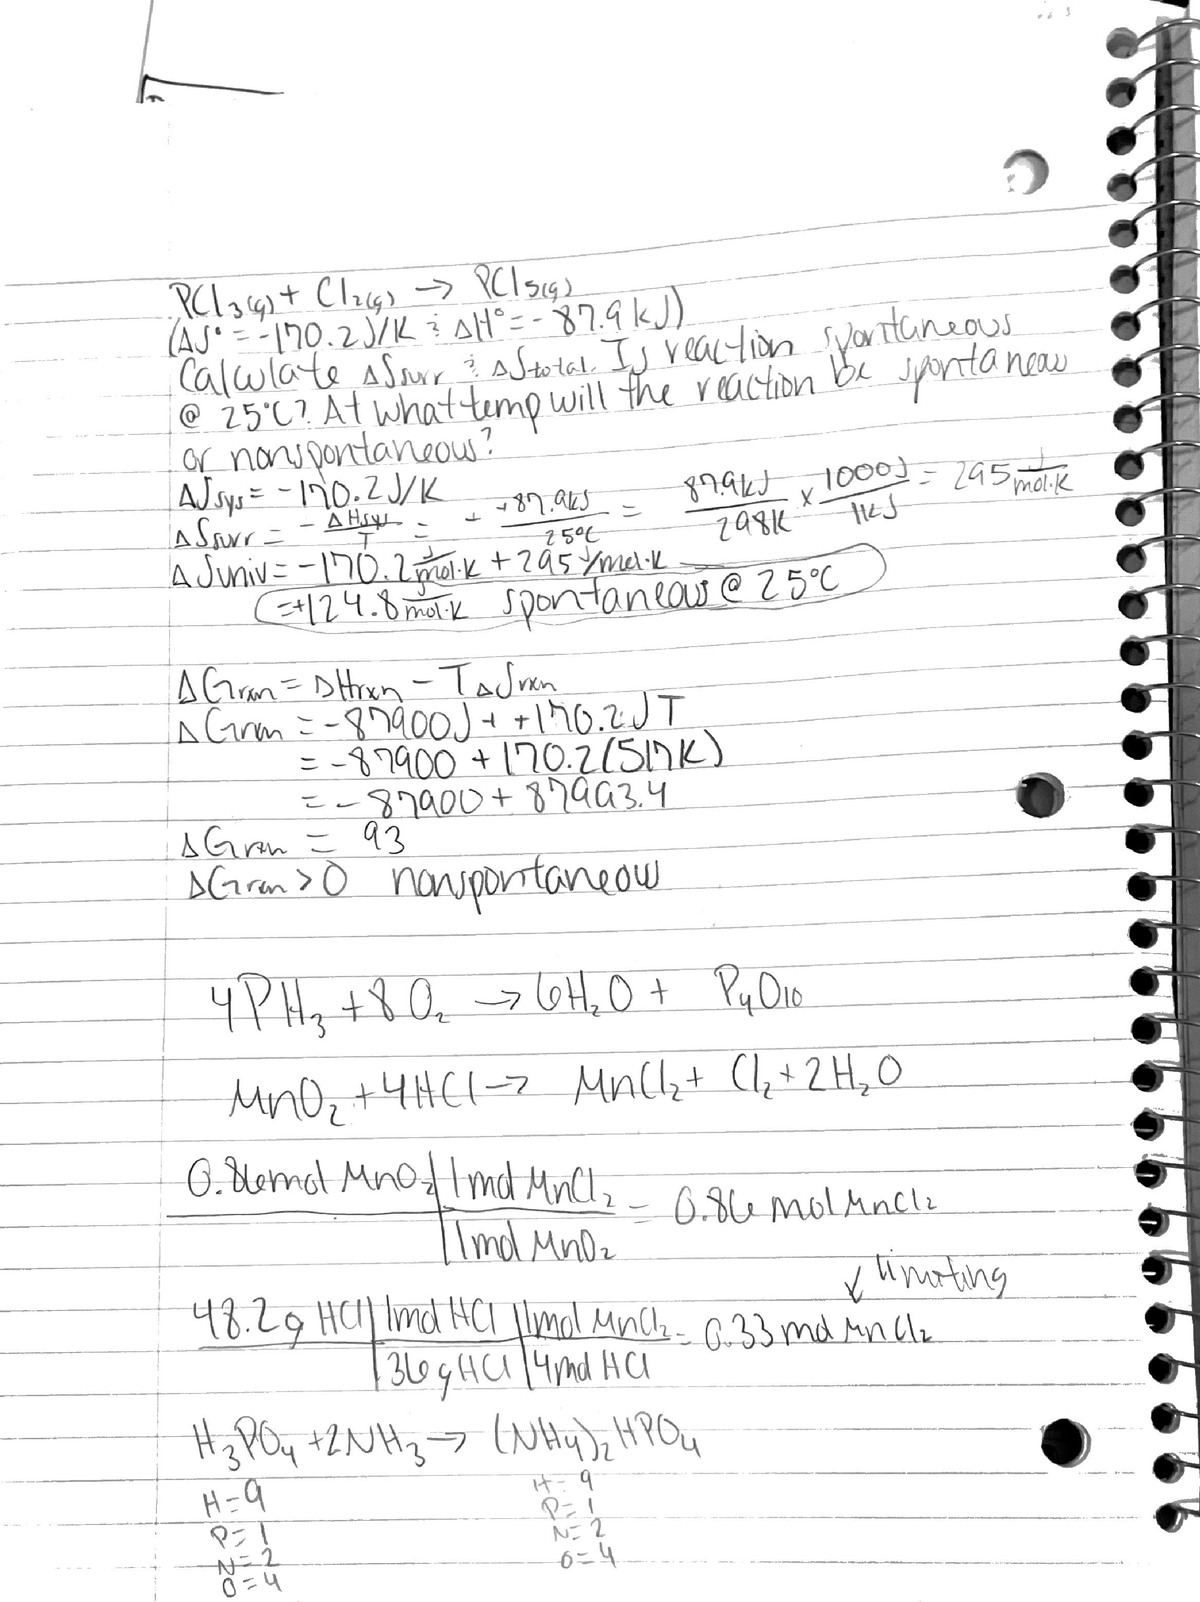 PCl₃(g) + Cl₂(g) → PCl₅(g)
(ΔS° = -170.2 J/K & ΔH° = -87.9 kJ)
Calculate ΔSsurr & ΔStotal. Is reaction spontaneous
@ 25°C? At what temp will the reaction be spontaneous
or nonspontaneous?
ΔSsys = -170.2 J/K
ΔSsurr = - ΔHsys/T = - -87.9kJ/25°C = 87.9kJ/298K × 1000J/1kJ = 295 J/mol·K
ΔSuniv = -170.2 J/mol·K + 295 J/mol·K
= +124.8 J/mol·K spontaneous @ 25°C
ΔGrxn = ΔHrxn - TΔSrxn
ΔGrxn = -87900J + +170.2J T
= -87900 + 170.2(517K)
= -87900 + 87993.4
ΔGrxn = 93
ΔGrxn > 0 nonspontaneous
4PH₃ + 8O₂ → 6H₂O + P₄O₁₀
MnO₂ + 4HCl → MnCl₂ + Cl₂ + 2H₂O
0.86mol MnO₂ | 1mol MnCl₂ = 0.86 mol MnCl₂
1mol MnO₂
↙ limiting
48.2g HCl | 1mol HCl | 1mol MnCl₂ = 0.33 mol MnCl₂
36gHCl | 4mol HCl
H₃PO₄ + 2NH₃ → (NH₄)₂HPO₄
H=9 H=9
P=1 P=1
N=2 N=2
O=4 O=4